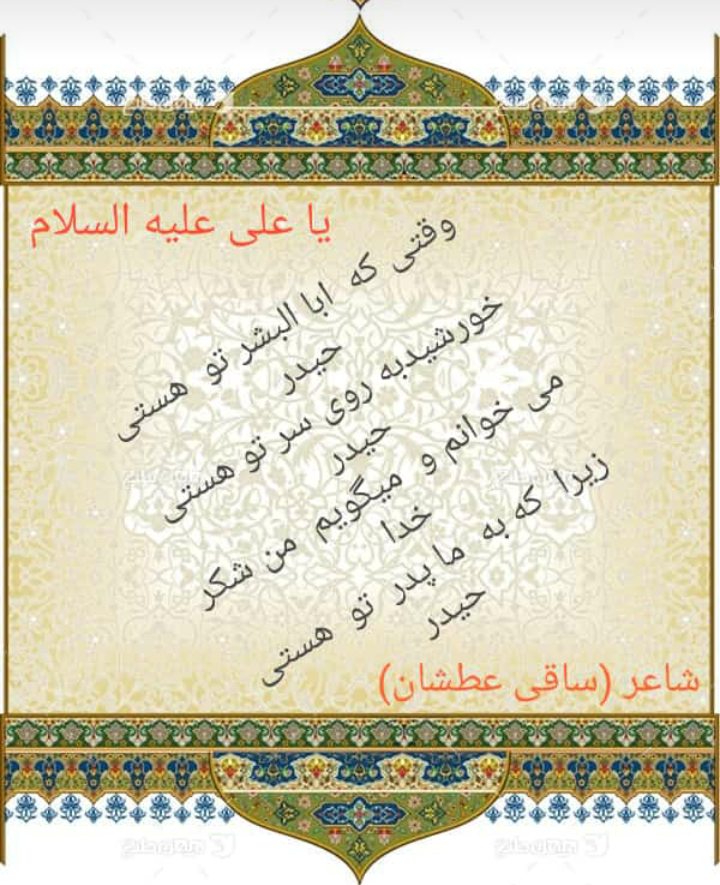 یا علی علیه السلام
وقتی که ابا البشر تو هستی
حیدر
خورشیدبه روی سر تو هستی
حیدر
می خوانم و میگویم من شکر
خدا
زیرا که به ما پدر تو هستی
حیدر
شاعر (ساقی عطشان)